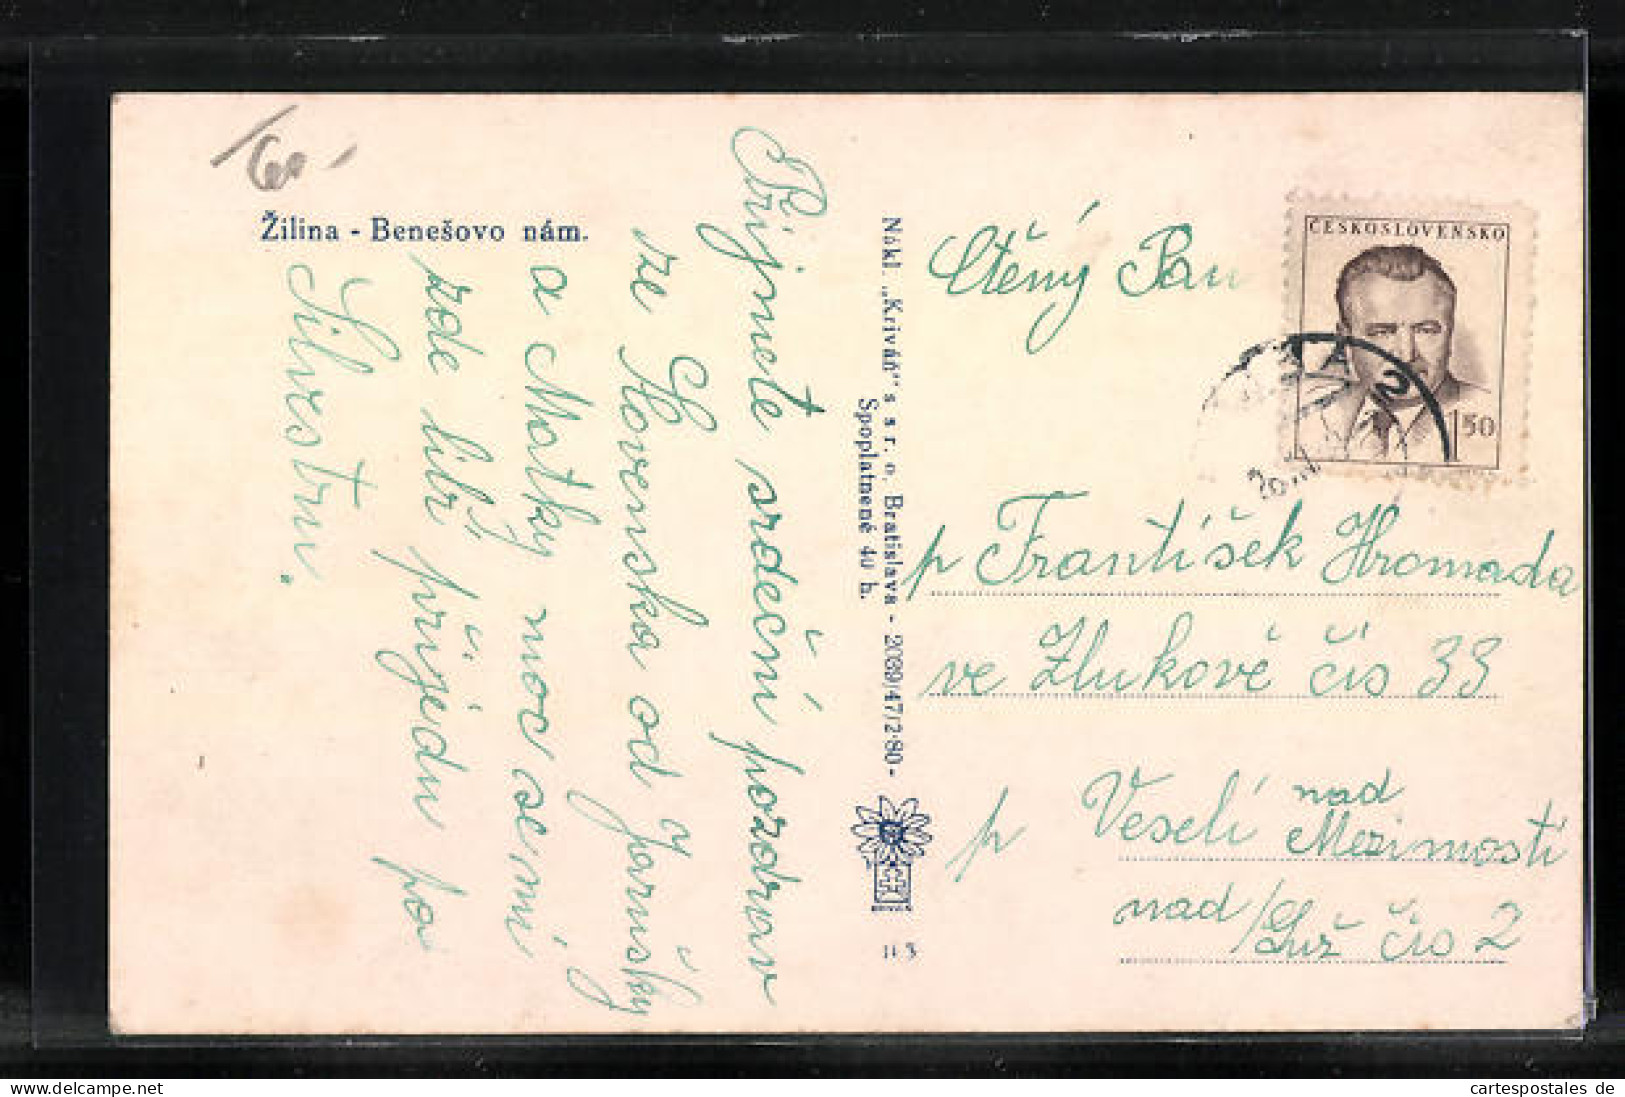 Žilina - Benešovo nám.
Přijměte srdečný pozdrav
ze Slovenska od Jarušky
a Matky moc se mi
zde líbí přijedu po
Silvestru.
Nákl. „Kriváň" s s r. o. Bratislava - 2089/47/2-80-
Spoplatnené 40 h.
II 3
Ctěný Pan
ČESKOSLOVENSKO
1 50
p František Hromada
ve Zlukově čís 33
p Veselí nad Mezimostí
nad/Luž čís 2
cartespostales de